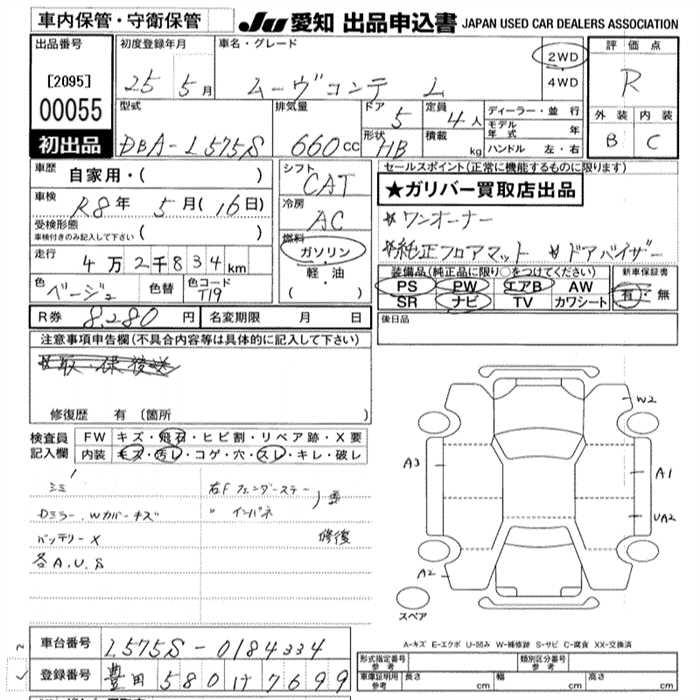 車内保管・守衛保管
JU 愛知 出品申込書 JAPAN USED CAR DEALERS ASSOCIATION
出品番号
[2095]
00055
初出品
初度登録年月 車名・グレード
25 5月 ムーヴコンテ L
2WD
4WD
評価点
R
外装 内装
B C
型式 排気量 ドア 定員
DBA-L575S 660cc 5 4人
形状 積載
HB kg
ディーラー・並行
モデル年式 年
ハンドル 左・右
車歴 自家用・( )
車検 R8年 5月(16日)
受検形態
車検付きのみ記入して下さい ( )
走行 4万2千834km
色 ベージュ 色替 色コード T19
シフト CAT
冷房 AC
燃料 ガソリン
軽・油
( ・ )
セールスポイント(正常に機能するものに限ります)
★ガリバー買取店出品
*ワンオーナー
*純正フロアマット *ドアバイザー
装備品(純正品に限り○をつけてください)
PS PW エアB AW
SR ナビ TV カワシート
新車保証書
有・無
R券 8,280円 名変期限 月 日
後日品
注意事項申告欄(不具合内容等は具体的に記入して下さい)
修復歴 有(箇所 )
検査員記入欄
FW キズ・飛石・ヒビ割・リペア跡・X要
内装 キズ・汚レ・コゲ・穴・スレ・キレ・破レ
シミ 右Fフェンダーステー
Dミラー.Wカバーキズ 〃 インパネ
バッテリーX 修復
各A.U.S
W2
A3
A1
UA2
A2
スペア
A-キズ E-エクボ U-凹み W-補修跡 S-サビ C-腐食 XX-交換済
車台番号 L575S-0184334
登録番号 豊田 580 け 7699
形式指定番号参考 類別区分番号参考
車庫証明用参考 長さ cm 幅 cm 高さ cm